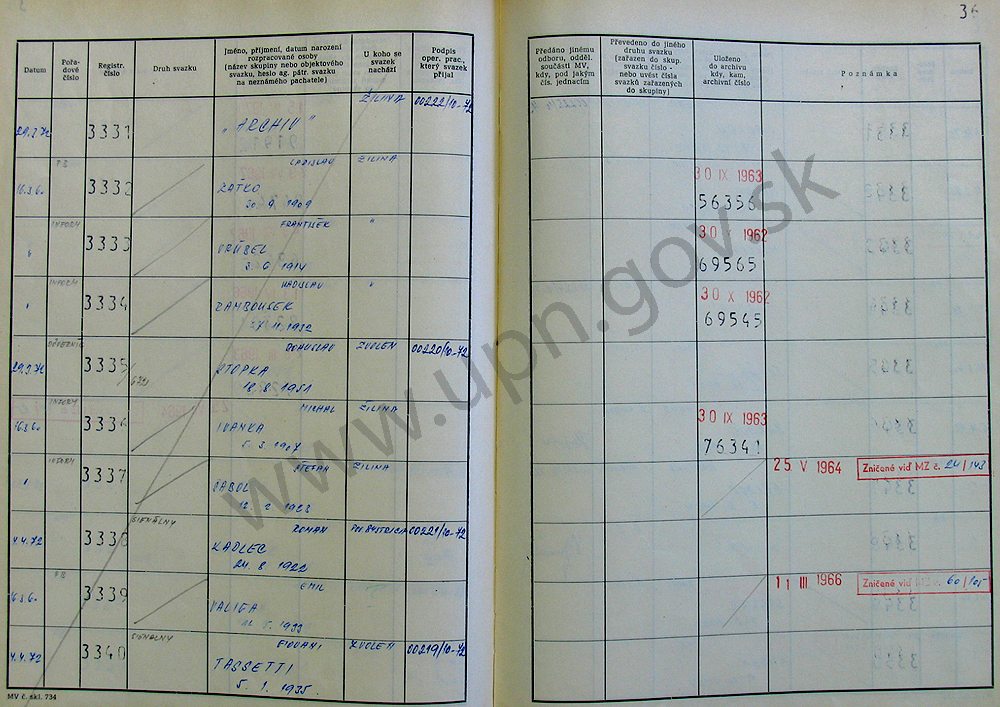 36
Datum
Pořadové číslo
Registr. číslo
Druh svazku
Jméno, příjmení, datum narození
rozpracované osoby
(název skupiny nebo objektového
svazku, heslo ag. pátr. svazku
na neznámého pachatele)
U koho se
svazek
nachází
Podpis
oper. prac.,
který svazek
přijal
Předáno jinému
odboru, odděl.
součásti MV,
kdy, pod jakým
čís. jednacím
Převedeno do jiného
druhu svazku
(zařazen do skup.
svazku číslo -
nebo uvést čísla
svazků zařazených
do skupiny)
Uloženo
do archivu
kdy, kam,
archivní číslo
Poznámka
29.3.72 3331 „ARCHIV" ŽILINA 00222/10-72
16.3.60 3332 LADISLAV ŽILINA
RAŤKO
30. 9. 1909
30 IX 1963
56356
INFORM " 3333 FRANTIŠEK "
VRÚBEL
3. 6. 1914
30 X 1962
69565
INFORM " 3334 LADISLAV "
RAMBOUSEK
27. 11. 1932
30 X 1962
69545
29.3.72 3335 BOHUSLAV ZVOLEN 00220/10-72
OTOPKA
18. 8. 1951
INFORM 16.3.60 3336 MICHAL ŽILINA
IVANKA
5. 3. 1907
30 IX 1963
76341
INFORM " 3337 ŠTEFAN ŽILINA
GABOL
25 V 1964 Zničené viď MZ č. 24/143
SIGNÁLNY
4.4.72 3338 ROMAN POV. BYSTRICA 00221/10-72
KADLEC
24. 8. 1922
16.3.60 3339 EMIL
VALIGA
11 III 1966 Zničené viď MZ č. 60/105
SIGNÁLNY
4.4.72 3340 GIOVANI ZVOLEN 00219/10-72
TASSETTI
5. 1. 1935.
MV č. skl. 734
www.upn.gov.sk